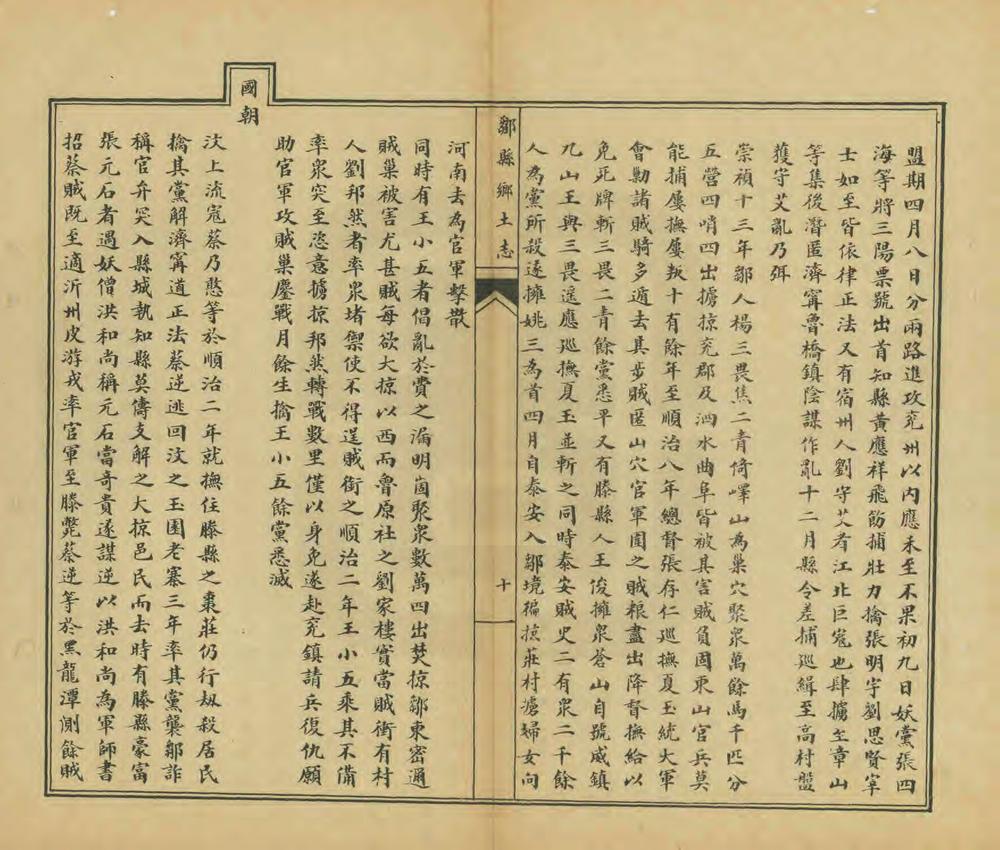 盟期四月八日分兩路進攻兖州以内應未至不果初九日妖黨張四
海等將三陽票號出首知縣黃應祥飛飭捕壮力擒張明宇劉思賢宰
士如至皆依律正法又有宿州人劉守艾者江北巨寇也肆擄至章山
等集後潛匿濟寧魯橋鎮陰謀作亂十二月縣令差捕巡緝至高村盤
獲守艾亂乃弭
崇禎十三年鄒人楊三畏焦二青倚嶧山為巢穴聚衆萬餘馬千匹分
五營四哨四出擄掠兖郡及泗水曲阜皆被其害賊負固東山官兵莫
能捕屢撫屢叛十有餘年至順治八年總督張存仁巡撫夏玉統大軍
會勦諸賊騎多遁去其步賊匿山穴官軍圍之賊粮盡出降督撫給以
免死牌斬三畏二青餘黨悉平又有滕縣人王俊擁衆蒼山自號威鎮
九山王與三畏遥應巡撫夏玉並斬之同時泰安賊史二有衆二千餘
人為黨所殺遂擁姚三為首四月自泰安入鄒境徧掠莊村擄婦女向
鄒縣鄉土志
十
河南去為官軍擊散
同時有王小五者倡亂於費之漏明崮聚衆數萬四出焚掠鄒東密邇
賊巢被害尤甚賊每欲大掠以西而魯原社之劉家樓實當賊衝有村
人劉邦然者率衆堵禦使不得逞賊銜之順治二年王小五乘其不備
率衆突至恣意擄掠邦然轉戰數里僅以身免遂赴兖鎮請兵復仇願
助官軍攻賊巢鏖戰月餘生擒王小五餘黨悉滅
國朝
汶上流寇蔡乃憨等於順治二年就撫住滕縣之棗莊仍行刼殺居民
擒其黨解濟寧道正法蔡逆逃回汶之玉圉老寨三年率其黨襲鄒詐
稱官弁突入縣城執知縣莫儔支解之大掠邑民而去時有滕縣豪富
張元石者遇妖僧洪和尚稱元石當奇貴遂謀逆以洪和尚為軍師書
招蔡賊既至適沂州皮游戎率官軍至滕斃蔡逆等於黑龍潭測餘賊